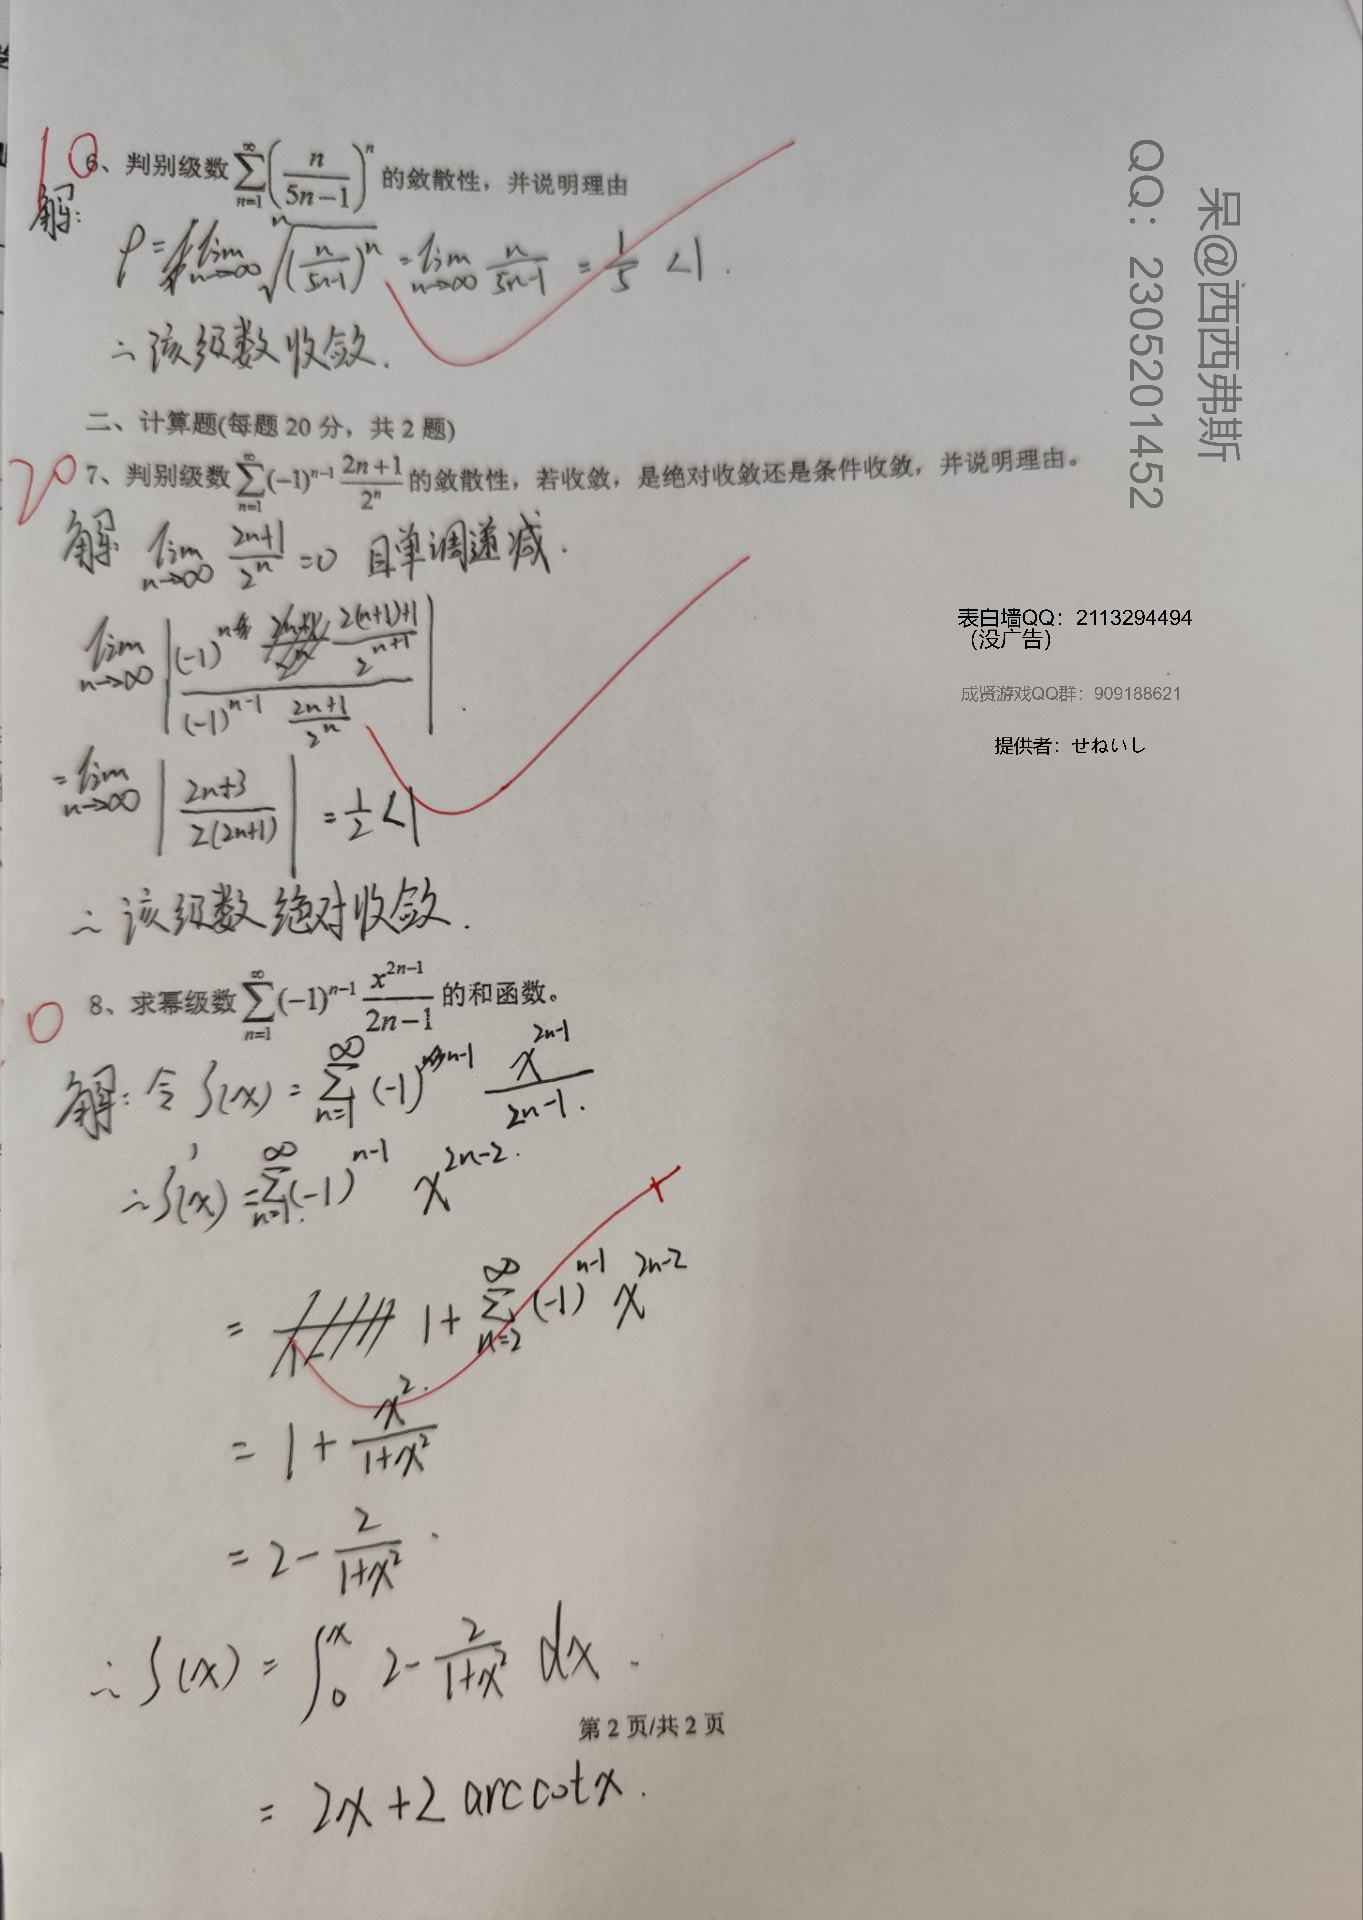 10
6、判别级数 ∑_{n=1}^{∞} (n/(5n−1))^n 的敛散性，并说明理由
解:
ρ = lim_{n→∞} ⁿ√((n/(5n-1))^n) = lim_{n→∞} n/(5n-1) = 1/5 < 1 .
∴ 该级数收敛.
二、计算题(每题 20 分，共 2 题)
20
7、判别级数 ∑_{n=1}^{∞} (−1)^{n−1} (2n+1)/2^n 的敛散性，若收敛，是绝对收敛还是条件收敛，并说明理由。
解: lim_{n→∞} (2n+1)/2^n = 0 且单调递减.
lim_{n→∞} | ((-1)^n (2(n+1)+1)/2^{n+1}) / ((-1)^{n-1} (2n+1)/2^n) | .
= lim_{n→∞} | (2n+3)/(2(2n+1)) | = 1/2 < 1
∴ 该级数绝对收敛.
0
8、求幂级数 ∑_{n=1}^{∞} (−1)^{n−1} x^{2n−1}/(2n−1) 的和函数。
解: 令 S(x) = ∑_{n=1}^{∞} (-1)^{n-1} x^{2n-1}/(2n-1).
∴ S'(x) = ∑_{n=1}^{∞} (-1)^{n-1} x^{2n-2}.
= 1 + ∑_{n=2}^{∞} (-1)^{n-1} x^{2n-2}
= 1 + x²/(1+x²)
= 2 - 2/(1+x²) .
∴ S(x) = ∫_0^x 2 - 2/(1+x²) dx .
第 2 页/共 2 页
= 2x + 2 arccot x .
呆@西西弗斯
QQ：2305201452
表白墙QQ：2113294494
（没广告）
成贤游戏QQ群：909188621
提供者：せねいし